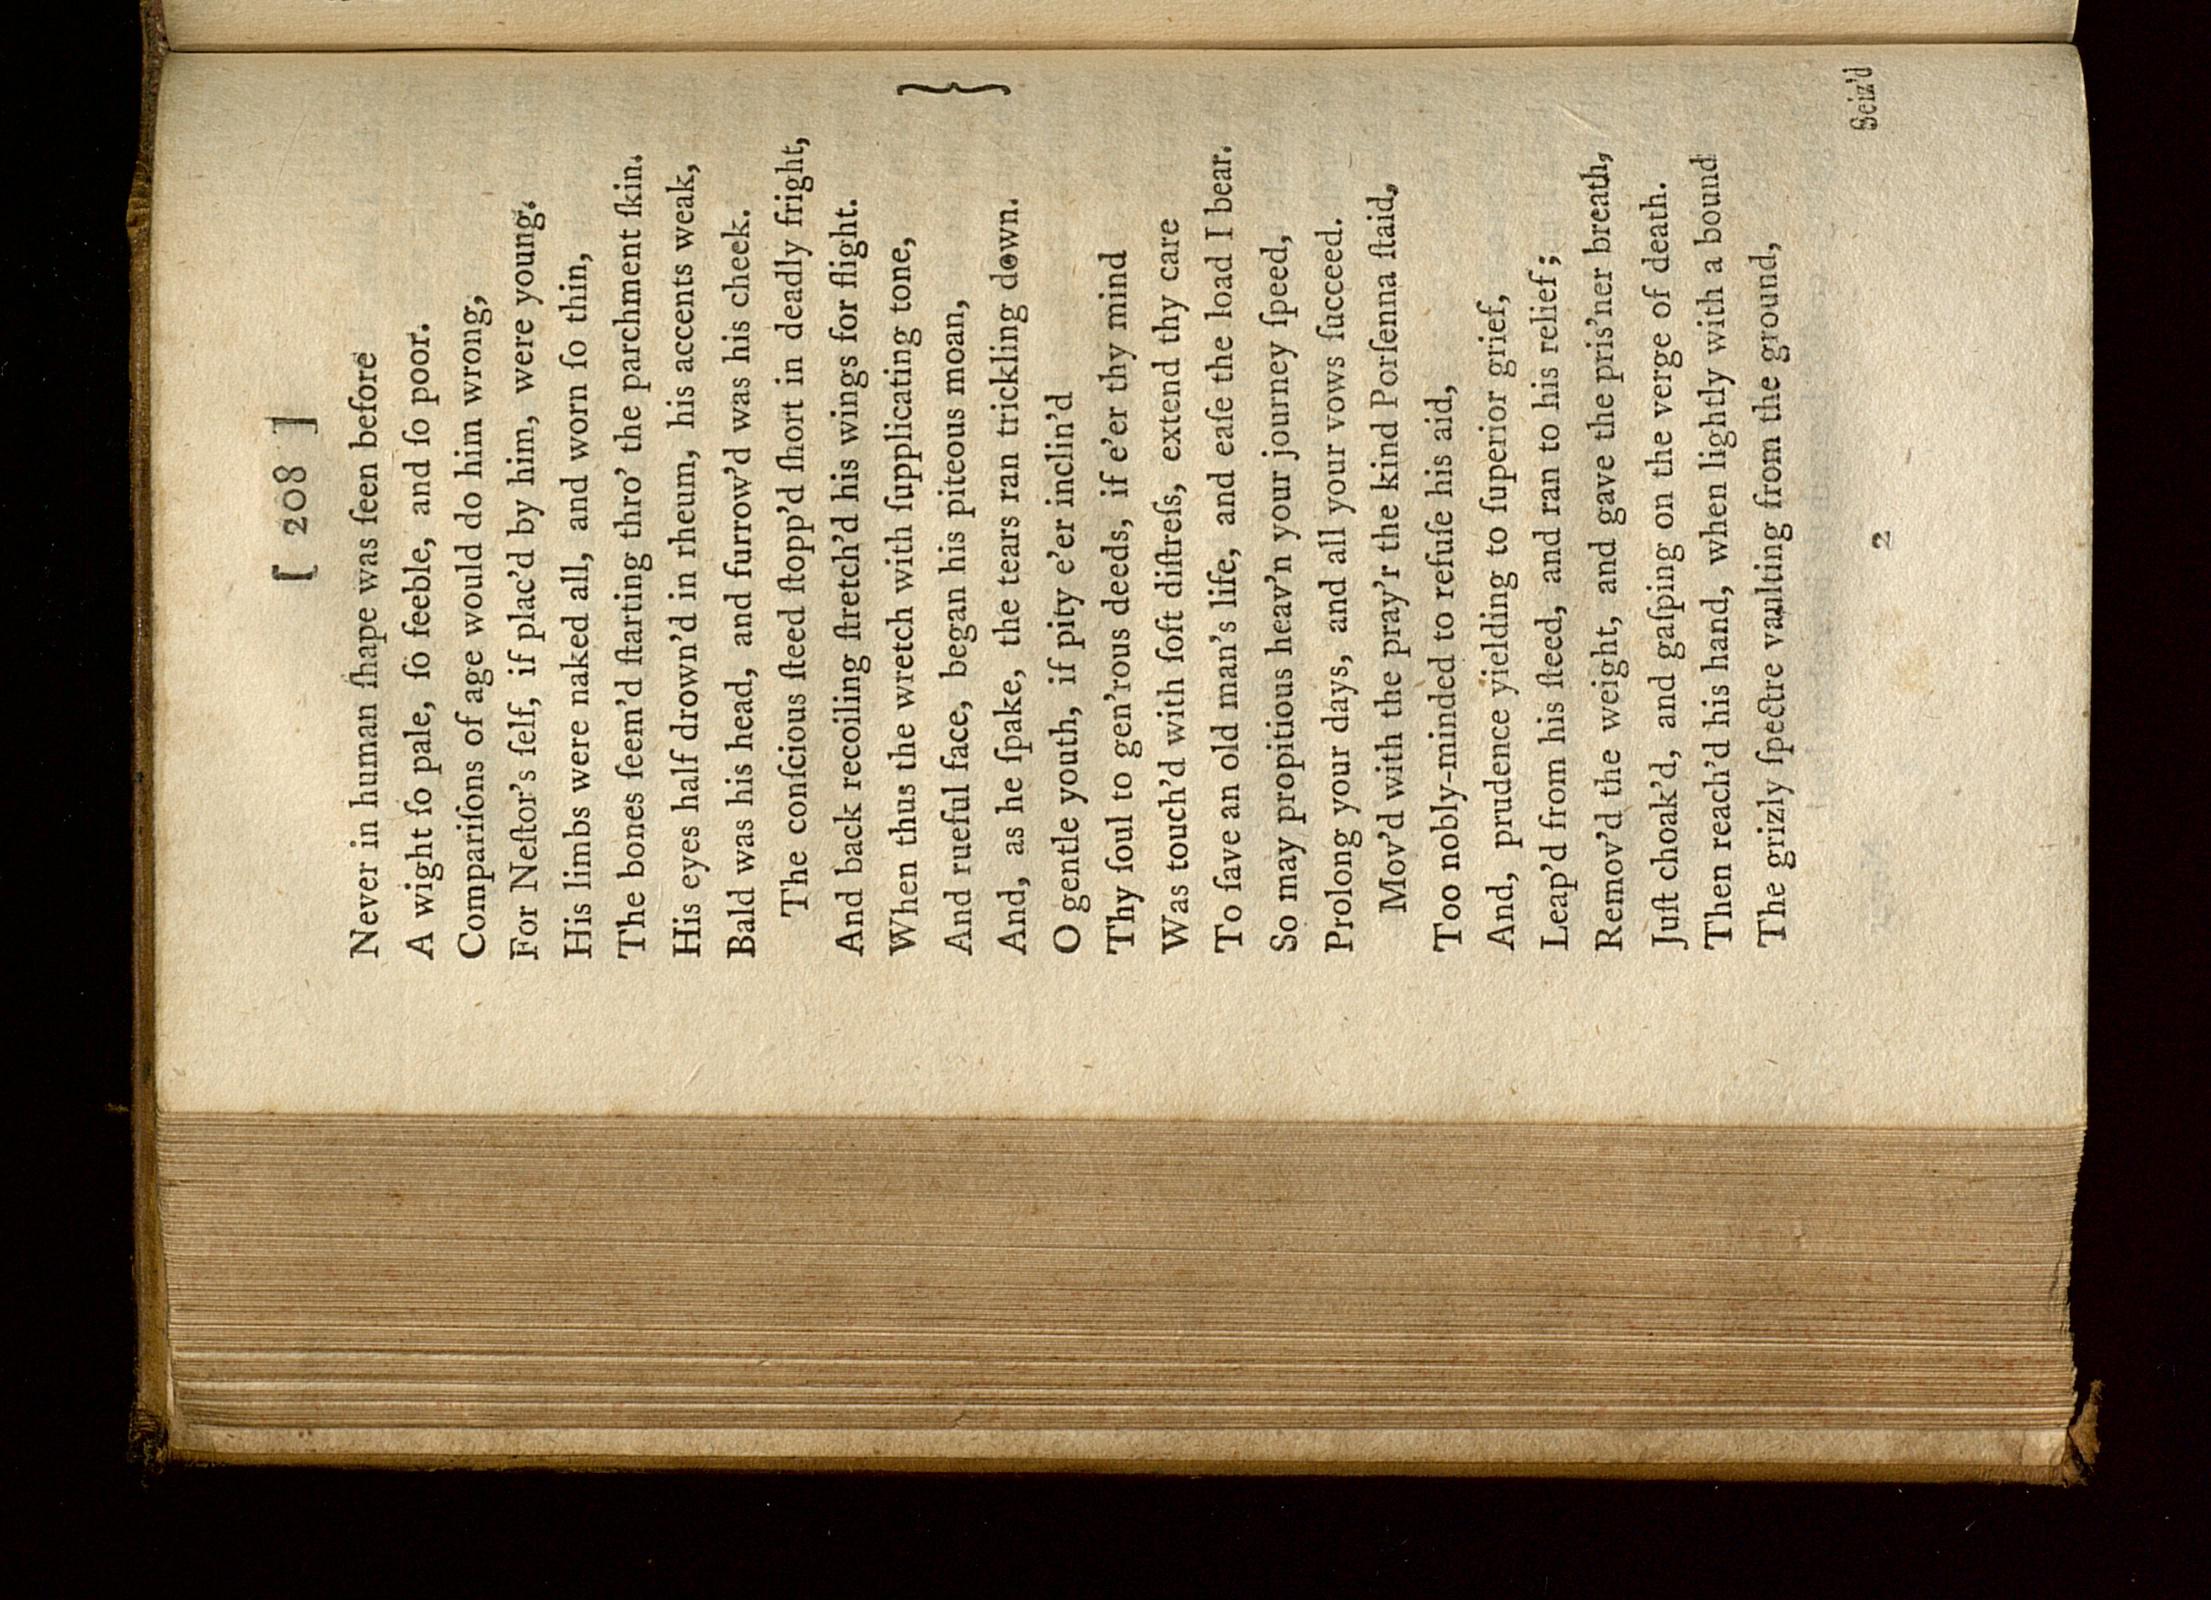 [ 208 ]
Never in human ſhape was ſeen before
A wight ſo pale, ſo feeble, and ſo poor.
Compariſons of age would do him wrong,
For Neſtor's ſelf, if plac'd by him, were young.
His limbs were naked all, and worn ſo thin,
The bones ſeem'd ſtarting thro' the parchment ſkin.
His eyes half drown'd in rheum, his accents weak,
Bald was his head, and furrow'd was his cheek.
The conſcious ſteed ſtopp'd ſhort in deadly fright,
And back recoiling ſtretch'd his wings for flight.
When thus the wretch with ſupplicating tone,
And rueful face, began his piteous moan,
And, as he ſpake, the tears ran trickling down.
}
O gentle youth, if pity e'er inclin'd
Thy ſoul to gen'rous deeds, if e'er thy mind
Was touch'd with ſoft diſtreſs, extend thy care
To ſave an old man's life, and eaſe the load I bear.
So may propitious heav'n your journey ſpeed,
Prolong your days, and all your vows ſucceed.
Mov'd with the pray'r the kind Porſenna ſtaid,
Too nobly-minded to refuſe his aid,
And, prudence yielding to ſuperior grief,
Leap'd from his ſteed, and ran to his relief;
Remov'd the weight, and gave the pris'ner breath,
Juſt choak'd, and gaſping on the verge of death.
Then reach'd his hand, when lightly with a bound
The grizly ſpectre vaulting from the ground,
2
Seiz'd